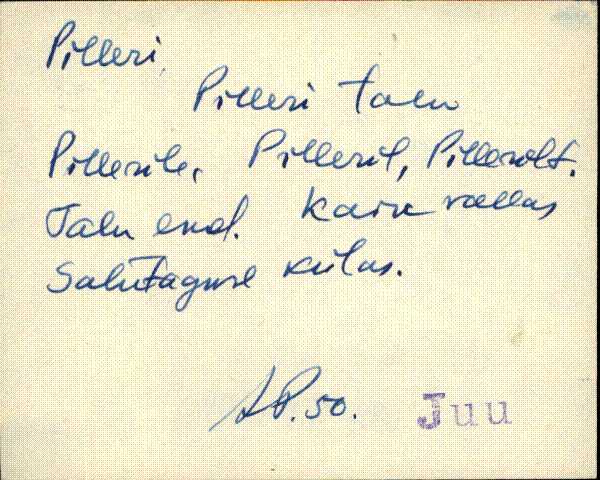 Pilleri,
Pilleri talu
Pillerile, Pilleril, Pillerilt.
Talu end. Kaiu vallas
Salutaguse külas.
AP. 50. Juu